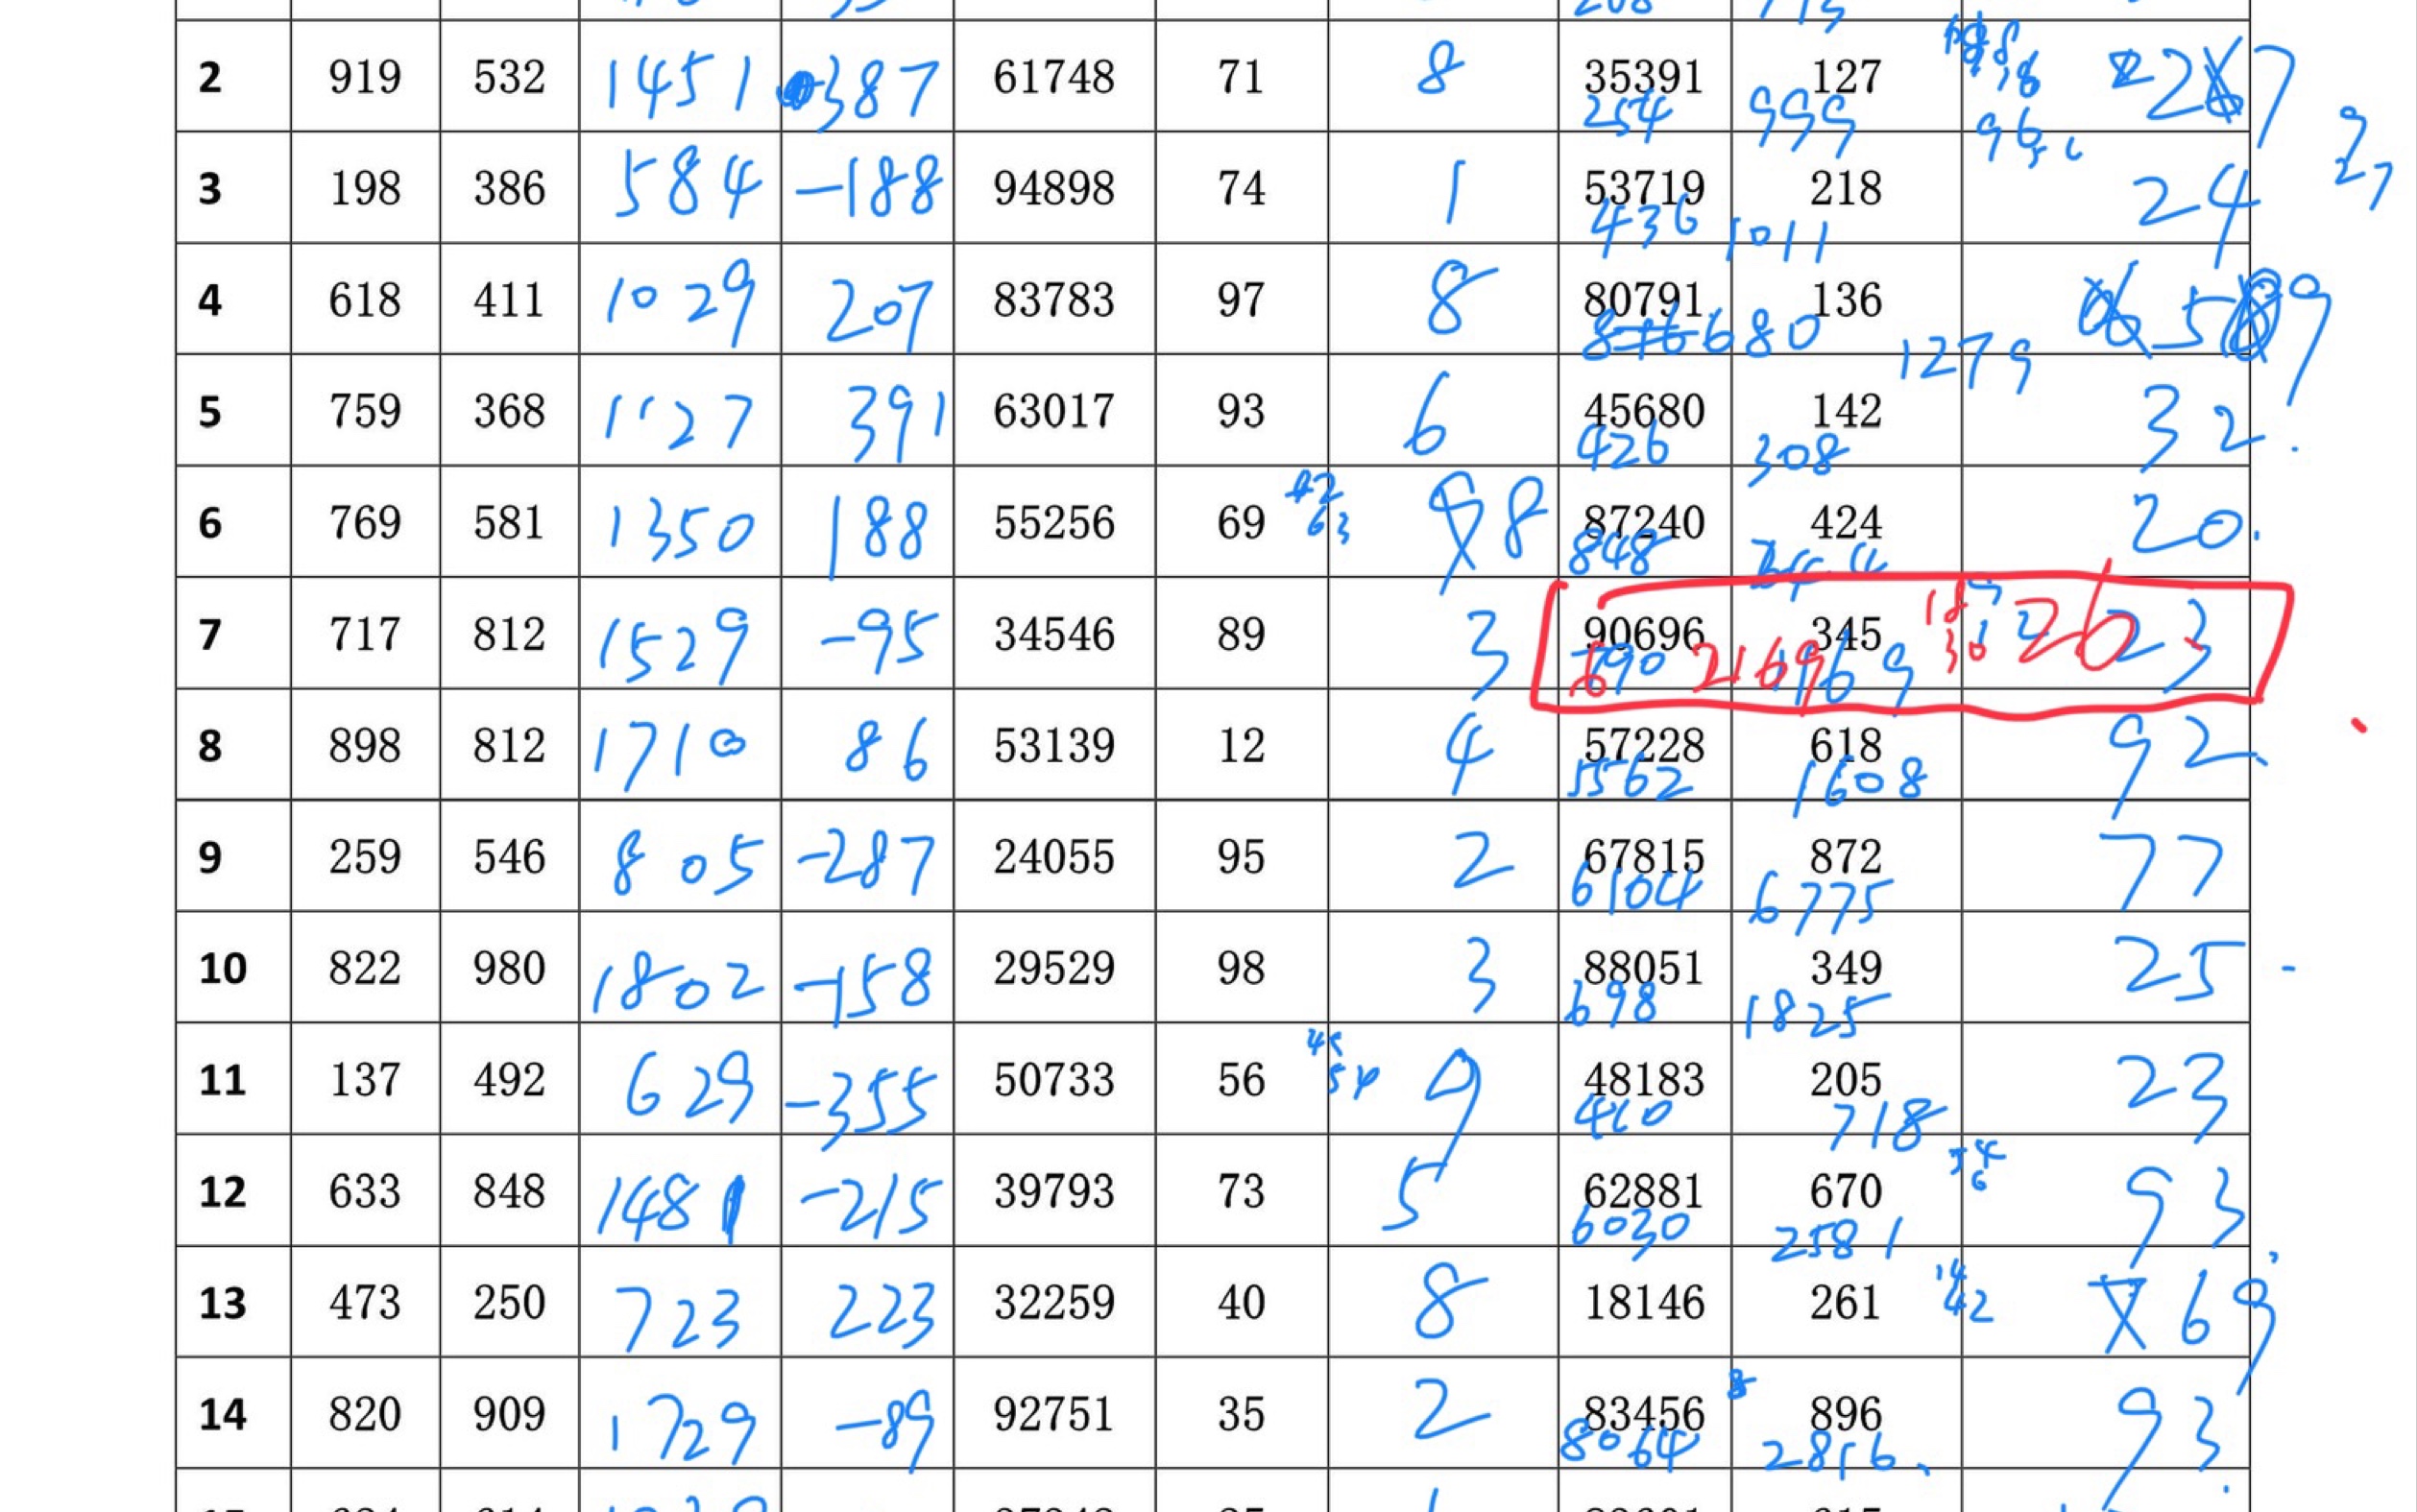 2 919 532 1451 387 61748 71 8 35391 127 27
254 999 96
3 198 386 584 -188 94898 74 1 53719 218 24 27
436 1011
4 618 411 1029 207 83783 97 8 80791 136 59
680 1279
5 759 368 1127 391 63017 93 6 45680 142 32.
426 308
6 769 581 1350 188 55256 69 63 8 87240 424 20.
848
7 717 812 1529 -95 34546 89 3 90696 345 18 26 23
690 2169 169 30
8 898 812 1710 86 53139 12 4 57228 618 92
5562 1608
9 259 546 805 -287 24055 95 2 67815 872 77
6104 6775
10 822 980 1802 -158 29529 98 3 88051 349 25
698 1825
11 137 492 629 -355 50733 56 45 54 9 48183 205 23
410 718
12 633 848 1481 -215 39793 73 5 62881 670 54 6 93
6030 2581
13 473 250 723 223 32259 40 8 18146 261 14 42 69
14 820 909 1729 -89 92751 35 2 83456 896 93
8064 2816